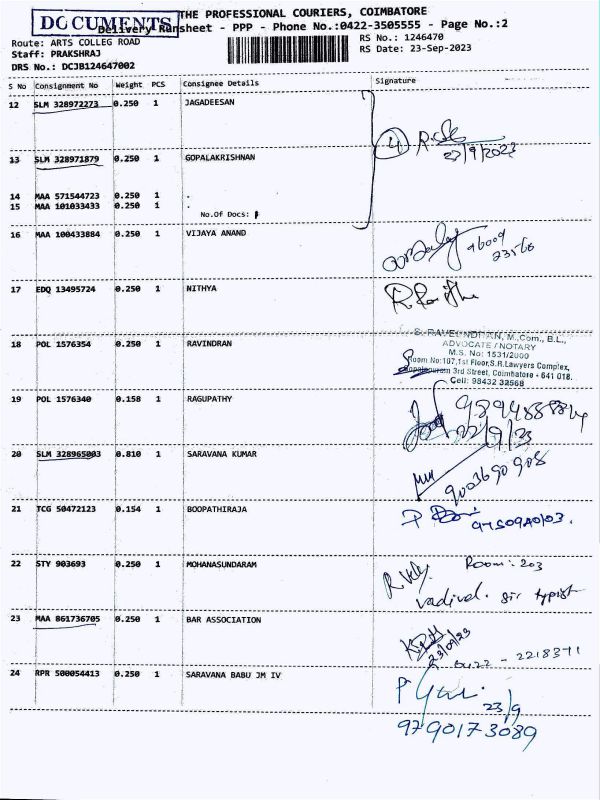 DOCUMENTS THE PROFESSIONAL COURIERS, COIMBATORE
Delivery Runsheet - PPP - Phone No.:0422-3505555 - Page No.:2
Route: ARTS COLLEG ROAD
RS No.: 1246470
Staff: PRAKSHRAJ
RS Date: 23-Sep-2023
DRS No.: DCJB124647002
S No Consignment No Weight PCS Consignee Details Signature
12 SLM 328972273 0.250 1 JAGADEESAN
4
23/9/2023
13 SLM 328971879 0.250 1 GOPALAKRISHNAN
14 MAA 571544723 0.250 1 .
15 MAA 101033433 0.250 1 .
No.Of Docs:
16 MAA 100433884 0.250 1 VIJAYA ANAND
17 EDQ 13495724 0.250 1 NITHYA
18 POL 1576354 0.250 1 RAVINDRAN
M.Com., B.L.,
ADVOCATE / NOTARY
M.S. No: 1531/2000
Room No:107,1st Floor,S.R.Lawyers Complex,
3rd Street, Coimbatore - 641 018.
Cell: 98432 32568
19 POL 1576340 0.158 1 RAGUPATHY
22/9/23
20 SLM 328965003 0.810 1 SARAVANA KUMAR
9003690908
21 TCG 50472123 0.154 1 BOOPATHIRAJA
22 STY 903693 0.250 1 MOHANASUNDARAM
Room: 203
vadivel. sir typist
23 MAA 861736705 0.250 1 BAR ASSOCIATION
23/09/23
2218371
24 RPR 500054413 0.250 1 SARAVANA BABU JM IV
23/9
9790173089